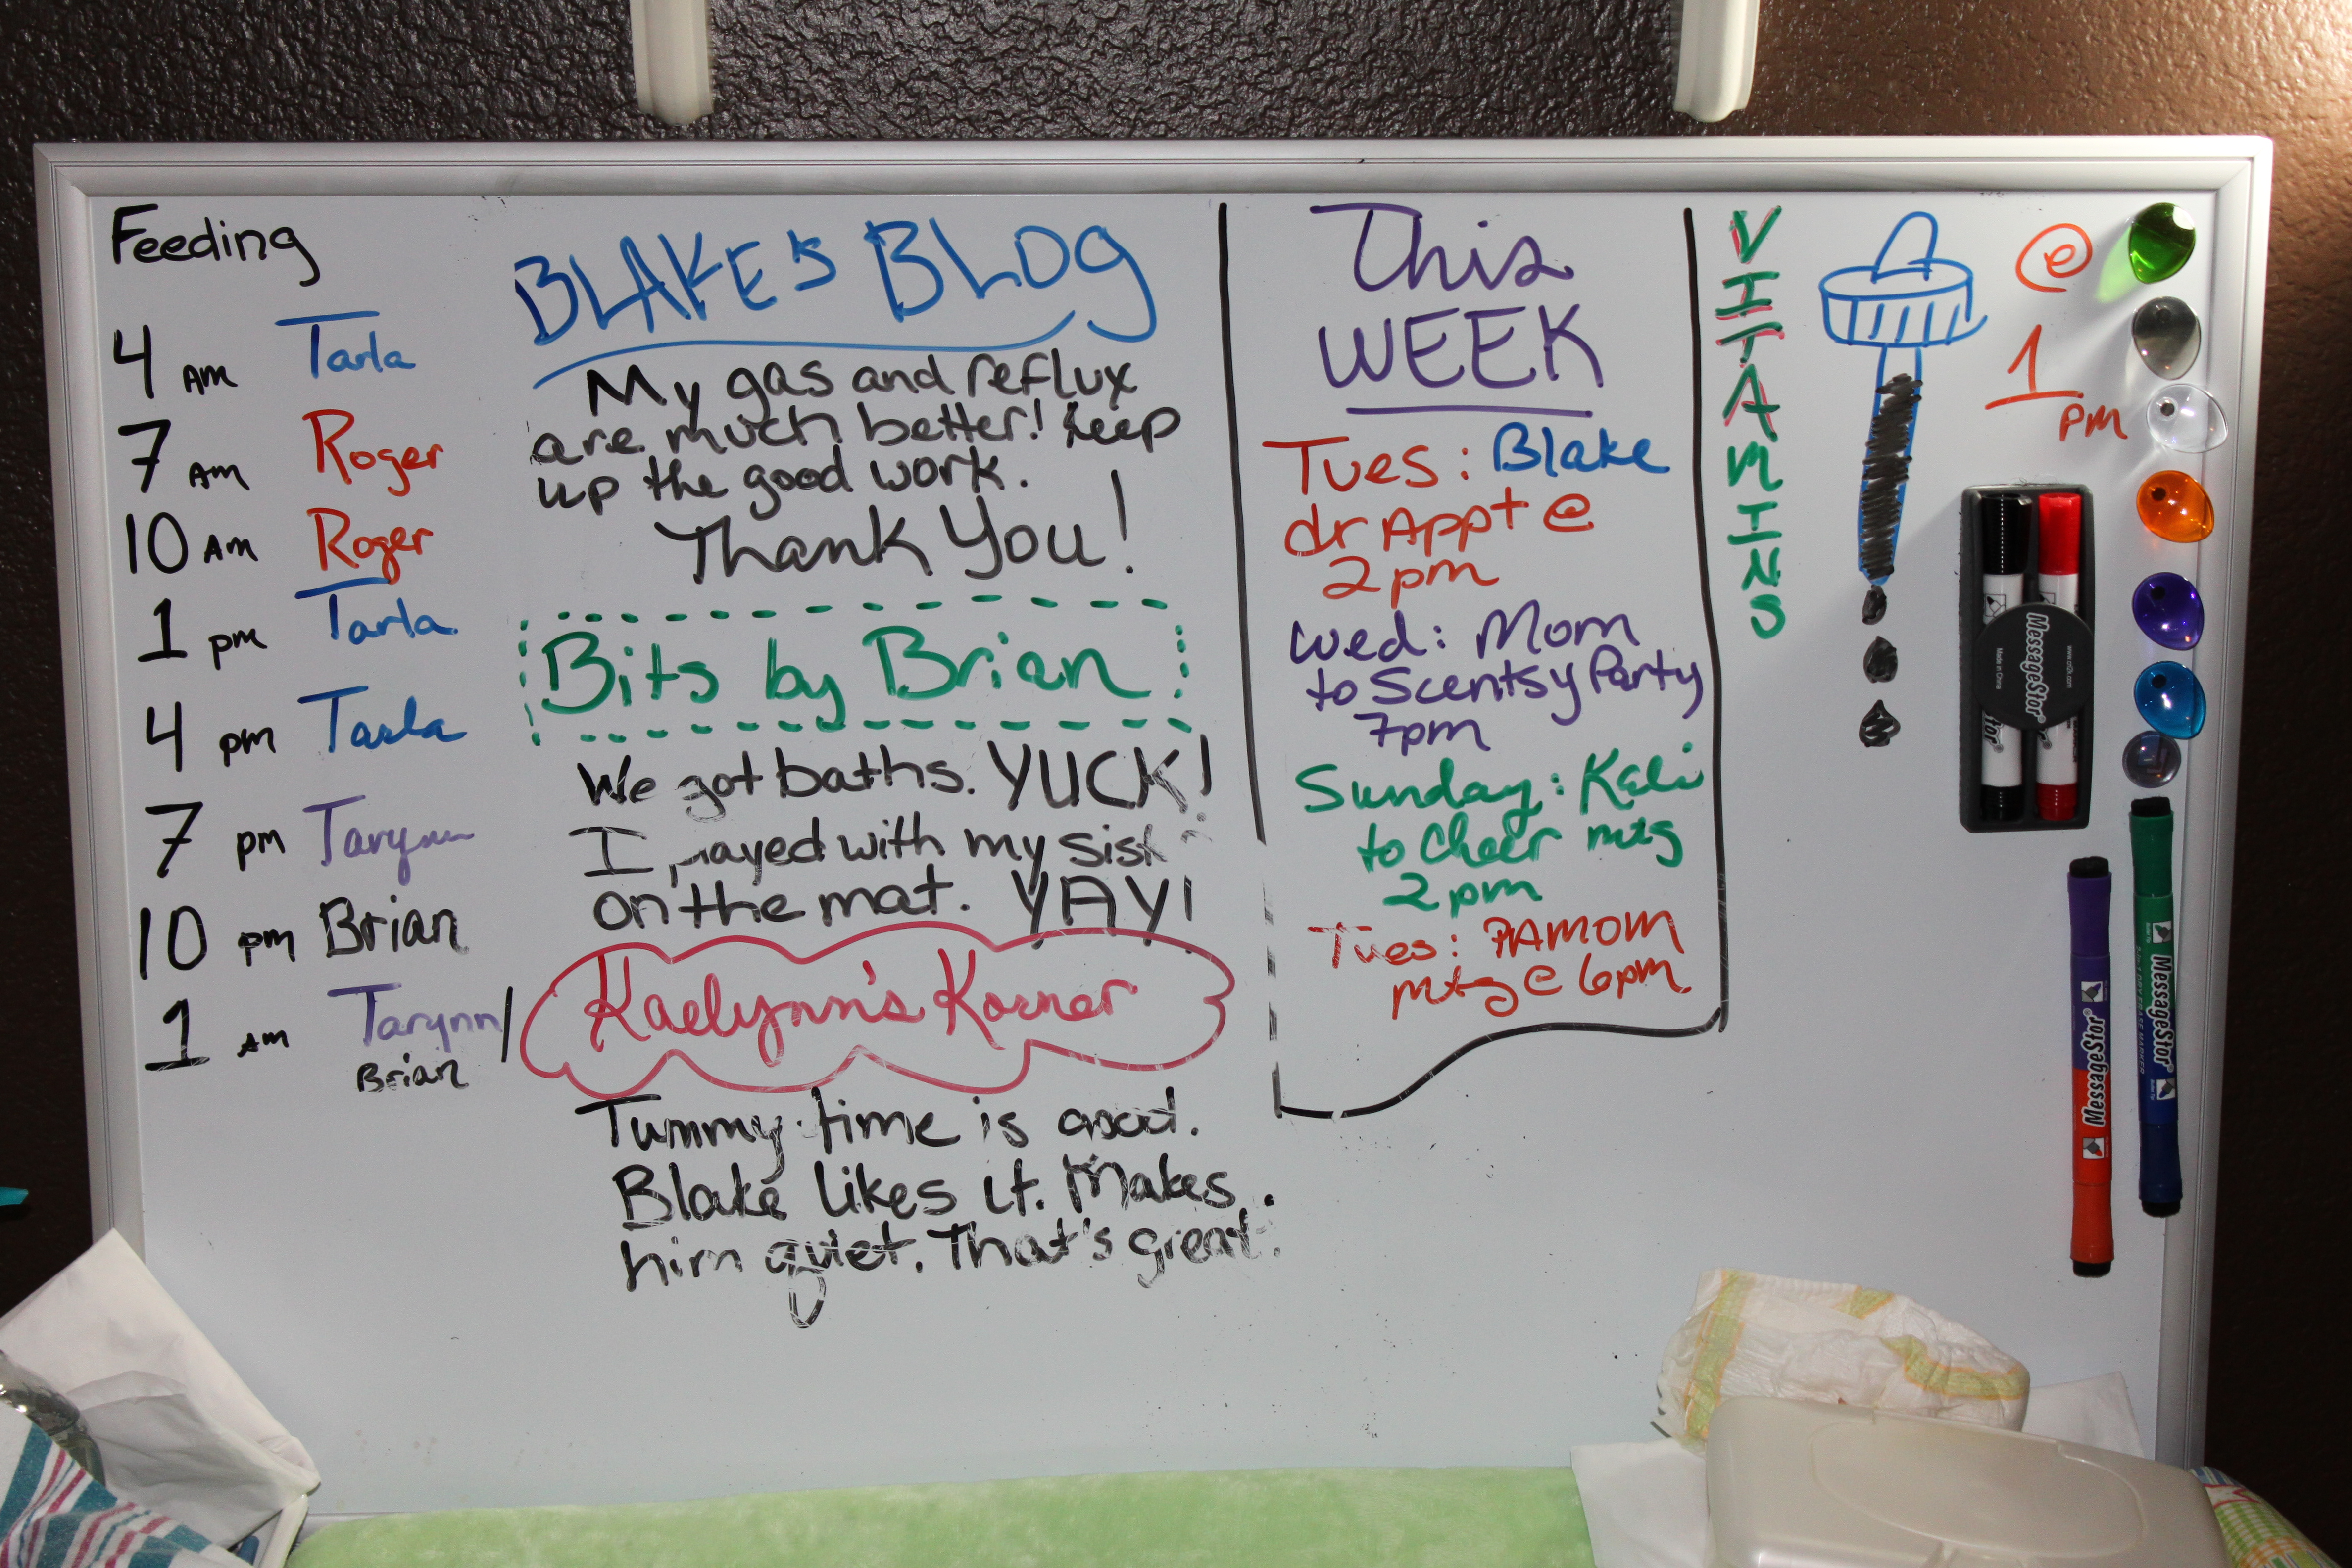 Feeding
4 AM Tarla
7 AM Roger
10 AM Roger
1 pm Tarla
4 pm Tarla
7 pm Tarynn
10 pm Brian
1 AM Tarynn/
Brian
BLAKE'S BLOG
My gas and reflux
are much better! Keep
up the good work.
Thank You!
Bits by Brian
We got baths. YUCK!
I played with my
on the mat. YAY!
Kaelynn's Korner
Tummy time is good.
Blake likes it. Makes
him quiet. That's great.
This
WEEK
Tues: Blake
dr Appt @
2pm
Wed: Mom
to Scentsy Party
7pm
Sunday: Keli
to Cheer mtg
2pm
Tues: PAMOM
mtg @ 6pm
VITAMINS
@
1
pm
MessageStor
www.cnijk.com
Made in China
MessageStor
MessageStor